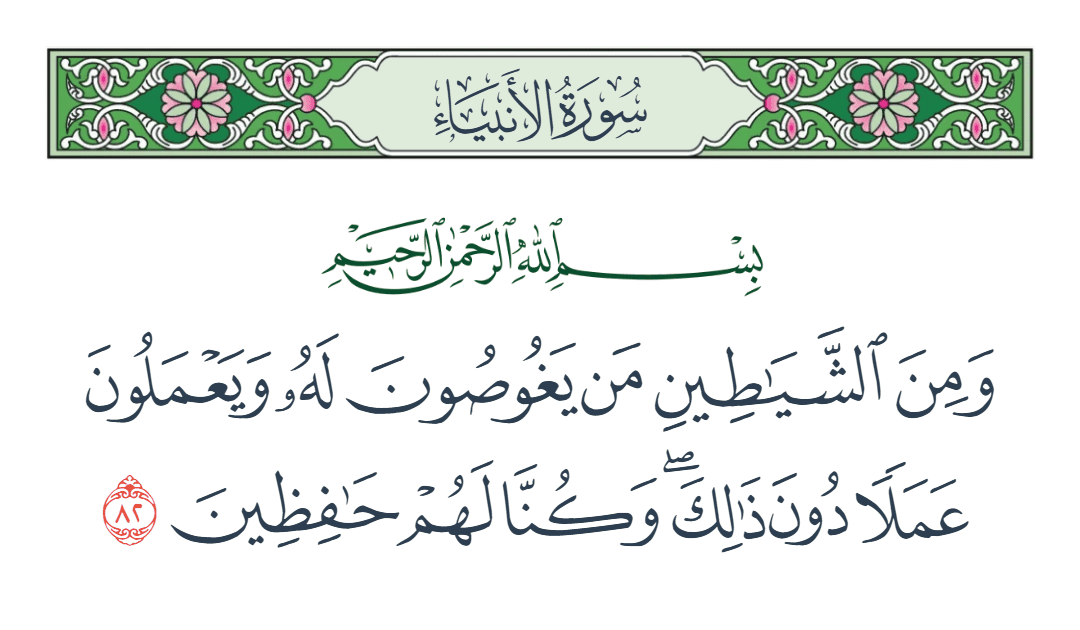 سُورَةُ الأَنبِيَاءِ
بِسْمِ ٱللَّهِ ٱلرَّحْمَٰنِ ٱلرَّحِيمِ
وَمِنَ ٱلشَّيَٰطِينِ مَن يَغُوصُونَ لَهُۥ وَيَعْمَلُونَ
عَمَلًا دُونَ ذَٰلِكَۖ وَكُنَّا لَهُمْ حَٰفِظِينَ ٨٢